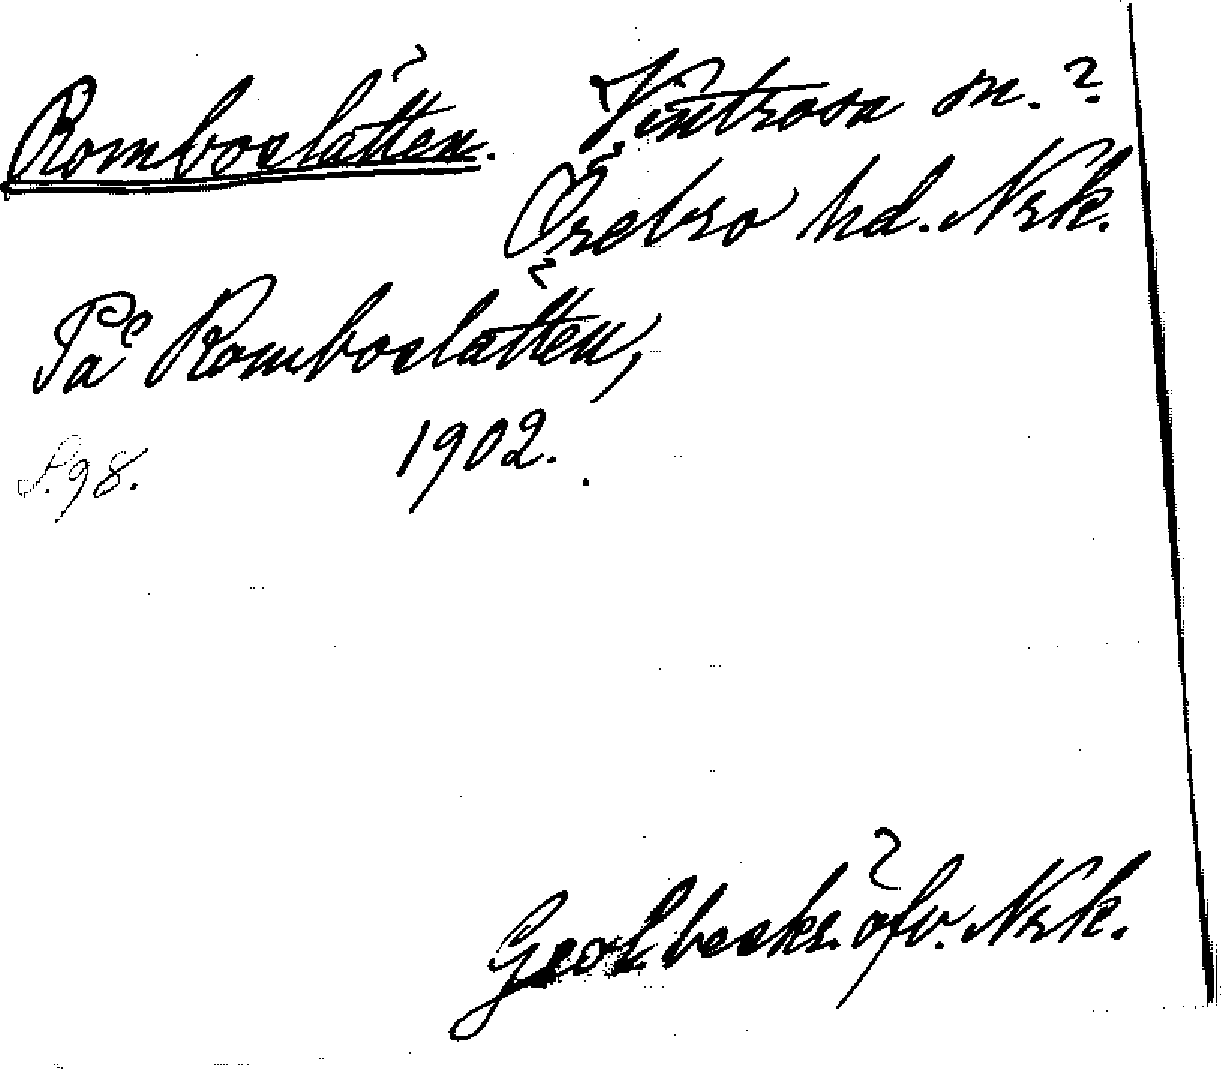 Romboslätten. Vintrosa sn.?
Örebro hd. Nrk.
På Romboslätten,
1902.
S. 98.
Geol. beskr. öfv. Nrk.